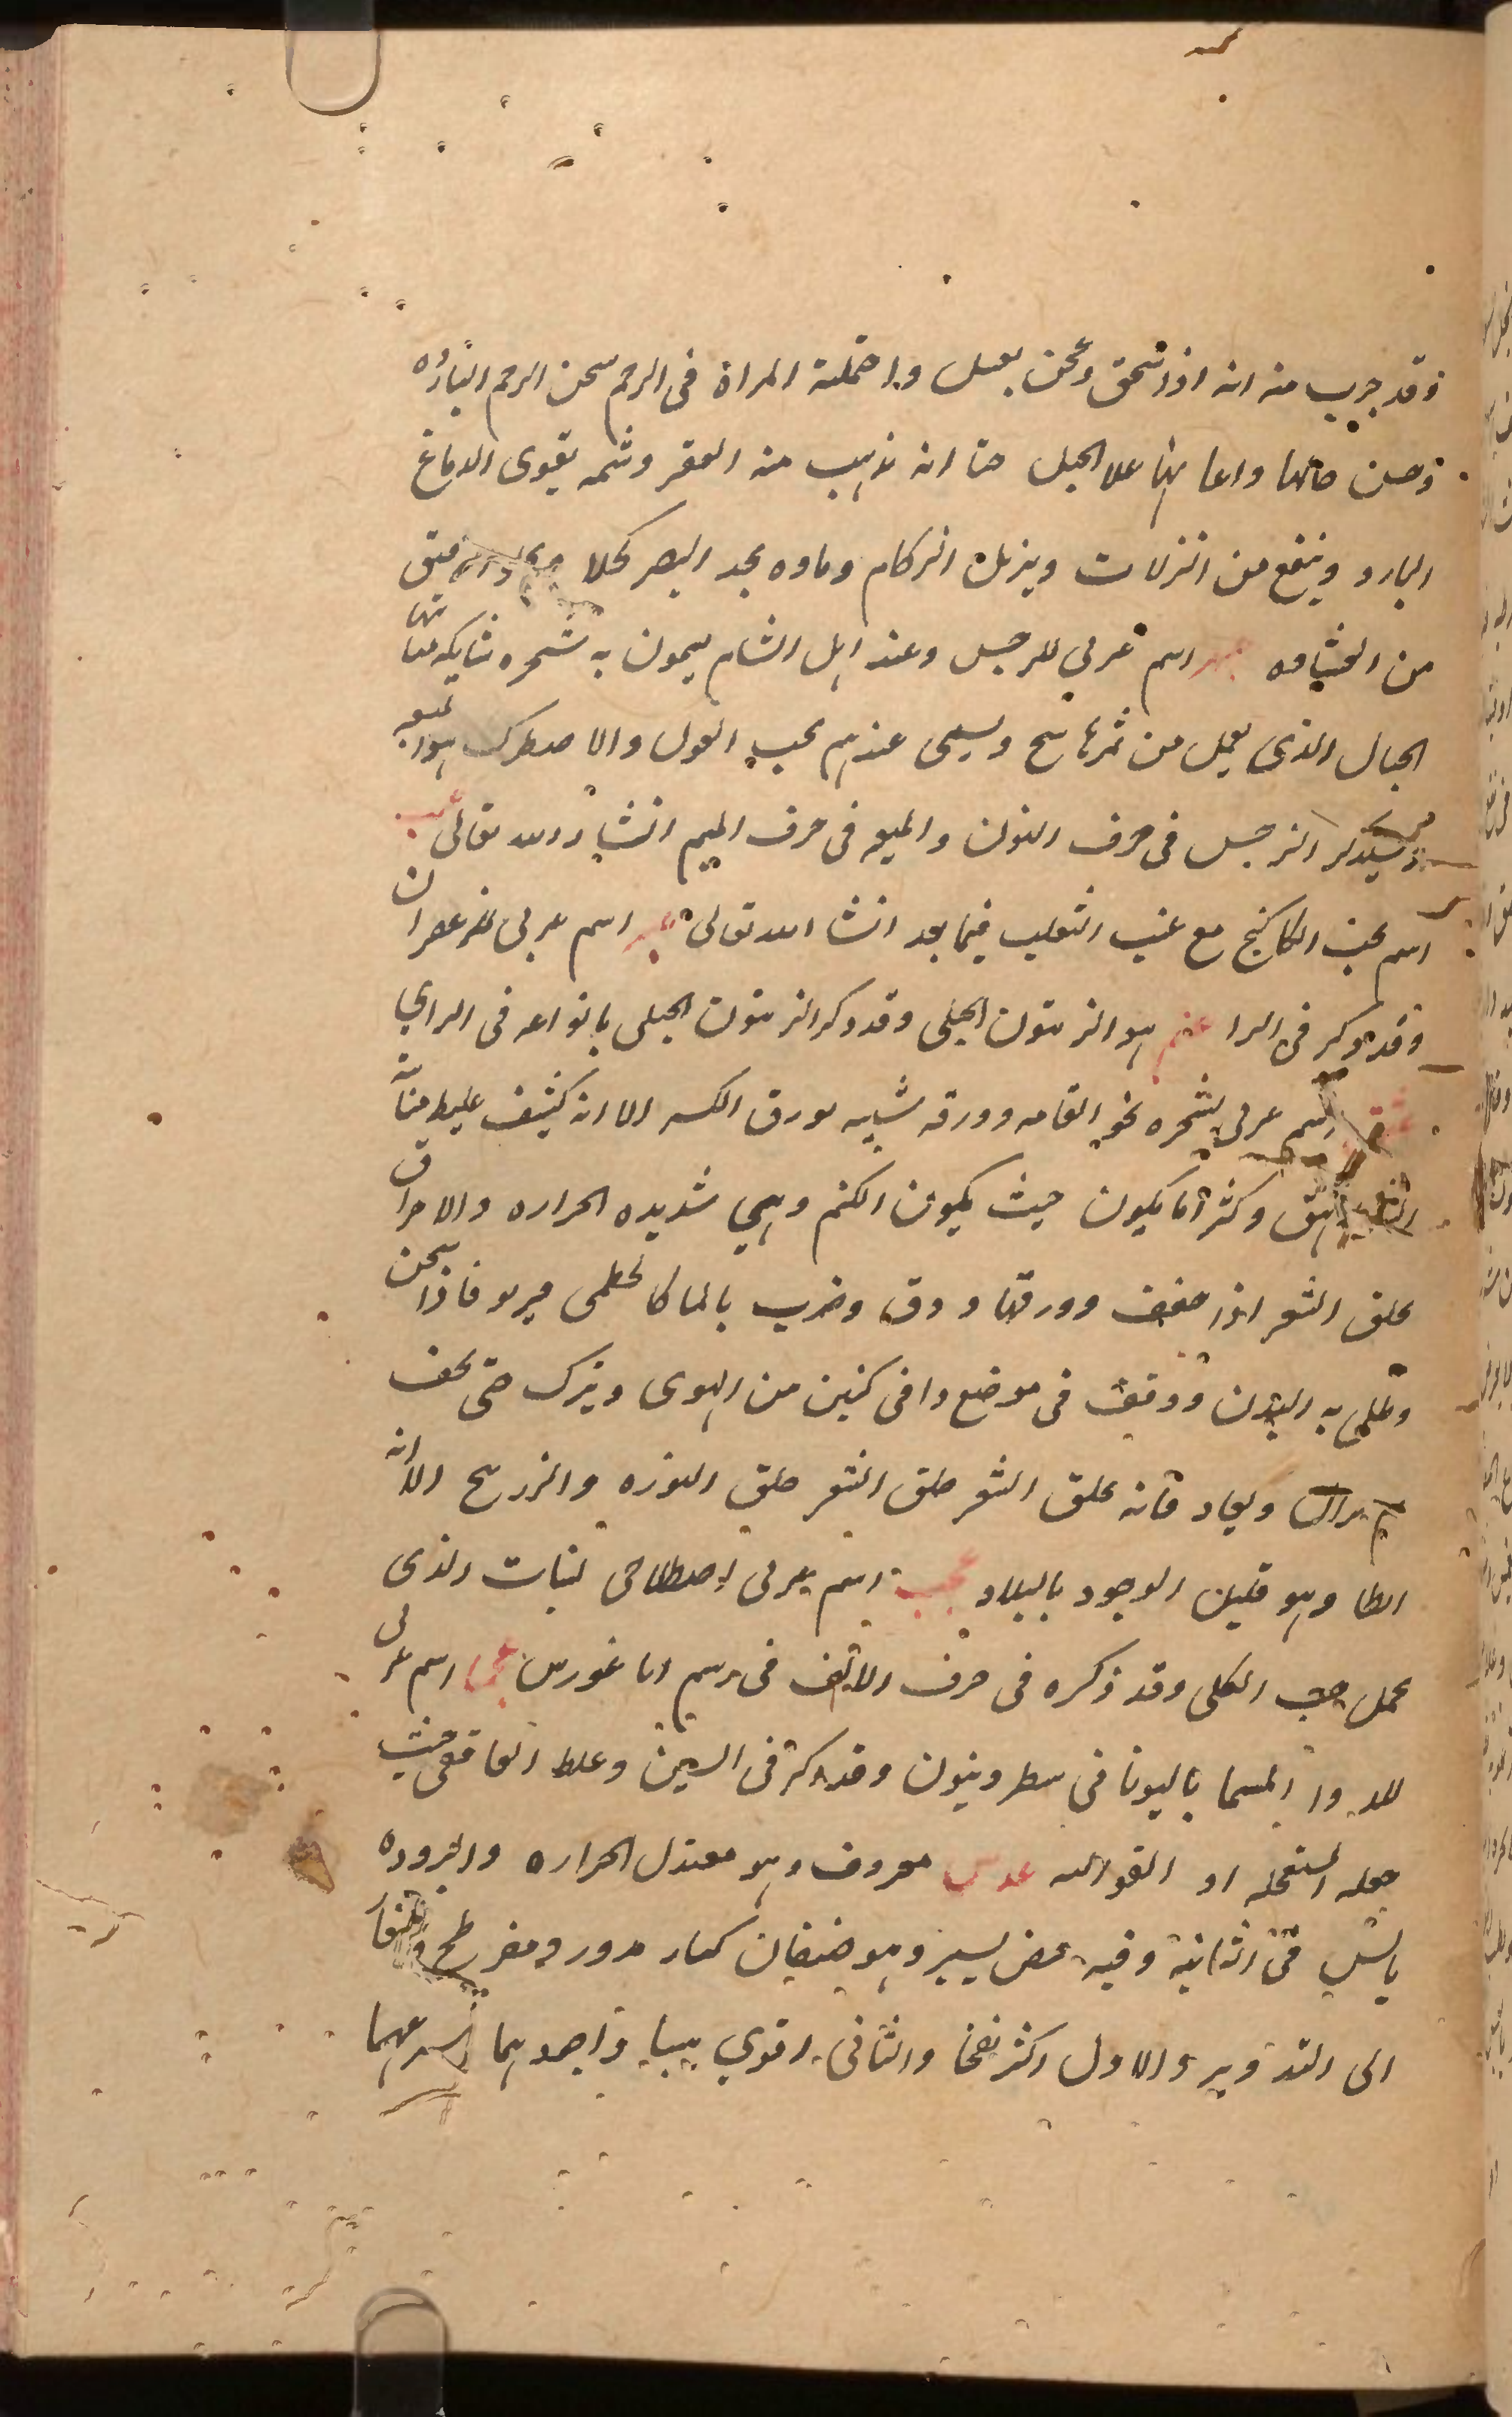 وقد جرب منه انه اذا سحق وعجن بعسل واحتملته المراة فى الرحم سخن الرحم البارده
وحسن حالها واعانها علا الحبل حتا انه يذهب منه العقر وشمه يقوى الدماغ
البارد وينفع من النزلات ويزيل الزكام وماوه يحد البصر كحلا
من الغشاوه عبهر اسم عربي للنرجس وعند اهل الشام يسمون به شجره شايكه منباتها
الجبال الذى يعمل من ثمرها سبح ويسمى عندهم بحب الغول والاصطرك هو لميعه
وسيذكر النرجس فى حرف النون والميعه فى حرف الميم انشاء الله تعالى عبب
اسم عنب الكاكنج مع عنب الثعلب فيما بعد انشا الله تعالى عبير اسم عربى للزعفران
وقد ذكر فى الرا عتم هو الزيتون الجبلى وقد ذكر الزيتون الجبلى بانواعه فى الراي
عتق اسم عربى لشجره نحو القامه وورقه شبيه بورق الكبر الا انه كثيف غليط منباته
وكثر ما يكون حيث يكون الكتم وهي شديده الحراره والاحراق
يحلق الشعر اذا جفف وورقها ودق وضرب بالما كالخطمى ويرد فاذا سخن
وطلى به البدن ووقف فى موضع دافى كنين من الهوى ويترك حتى يجف
ثم يزال ويعاد فانه يحلق الشعر حلق الشعر حلق النوره والزرنيخ الا انه
ابطا وهو قليل الوجود بالبلاد عجب اسم عربى اصطلاحى لنبات الذى
يحمل حب الكلى وقد ذكره فى حرف الالف فى رسم انا غورس عجما اسم عربى
للدوا المسما باليونا فى سطرونيون وقد ذكر فى السين وغلط الغافقى حيث
جعله المستعجله او القوالله عدس معروف وهو معتدل الحراره والبروده
يابس فى الثانيه وفيه قبض يسير وهو ضنفان كبار مدور ومفرطح وصغار
الى التدوير والاول اكثر نفخا والثانى اقوي يبسا واجودهما اسرعهما